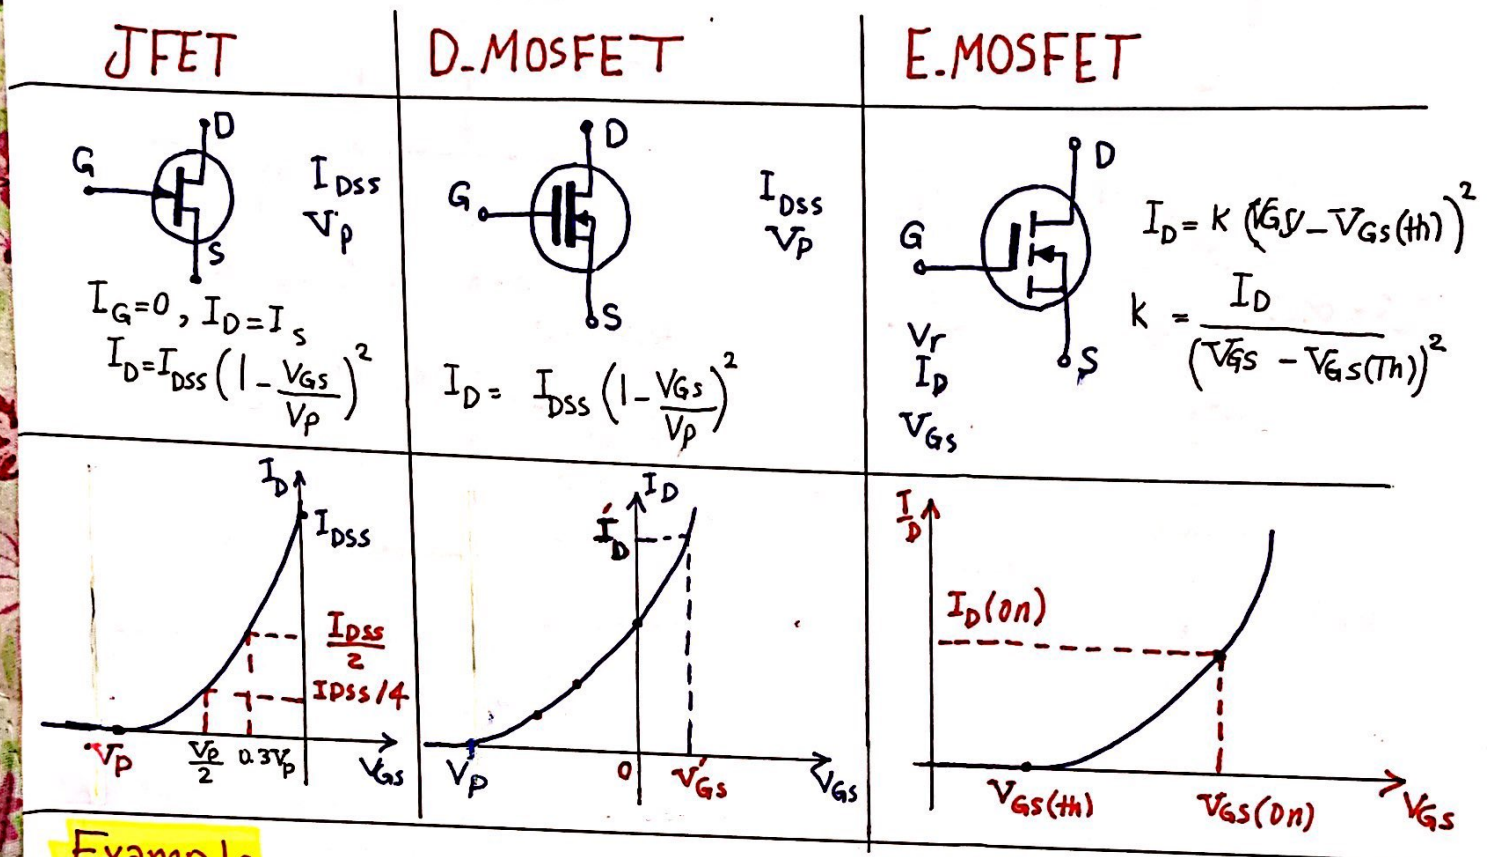 JFET
D-MOSFET
E.MOSFET
D
G
S
IDSS
VP
IG=0, ID=IS
ID=IDSS(1-VGS/VP)²
D
G
S
IDSS
VP
ID= IDSS(1-VGS/VP)²
D
G
S
Vr
ID
VGS
ID=K(VGS-VGS(th))²
K = ID/(VGS - VGS(Th))²
ID
IDSS
IDSS/2
IDSS/4
VP
VP/2
0.3VP
VGS
ID
I'D
VP
0
V'GS
VGS
ID
ID(on)
VGS(th)
VGS(on)
VGS
Example